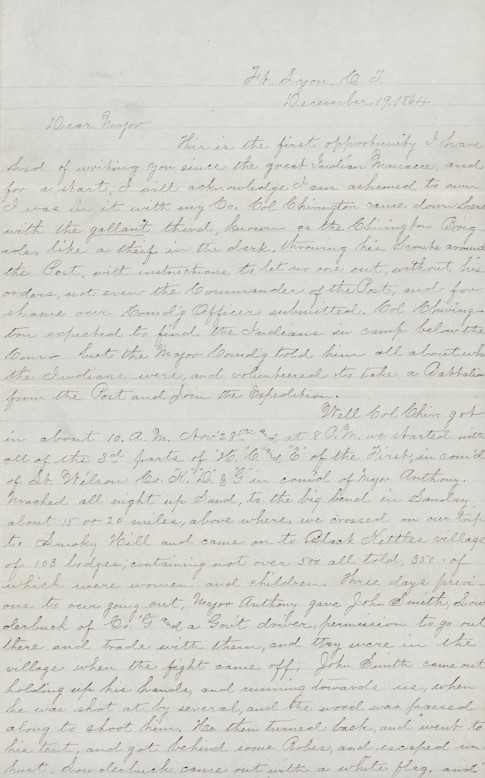 Ft. Lyon. C. T.
December, 19, 1864
Dear Major
This is the first opportunity I have
had of writing you since the great Indian Massacre, and
for a start, I will acknowledge I am ashamed to own
I was in it with my Co. Col Chivington came down here
with the gallant third, known as the Chivington Brig-
ade, like a theif in the dark, throwing his Scouts around
the Post, with instructions to let no one out, without his
orders, not even the Commander of the Post, and for
shame our Comd'g Officer submitted. Col Chiving-
ton expected to find the Indians in camp below the
Com- but the Major Comd'g told him all about where
the Indians were, and volunteered to take a Battalion
from the Post and Join the Expedition.
Well Col Chiv. got
in about 10. A.M. Nov 28th and at 8 P.M. we started with
all of the 3rd parts of "H," "C" and "E" of the First, in com'd
of Lt. Wilson Co. "K" "D" & "G" in com'd of Major Anthony.
Marched all night up Sand, to the big bend in Sandy,
about 15 or 20 miles, above where we crossed on our trip
to Smoky Hill and came on to Black Kettles village
of 103 lodges, containing not over 500 all told, 350 of
which were women and children. Three days previ-
ous to our going out, Major Anthony gave John Smith, Low-
derbuck of Co. "G" and a Gov't driver, permission to go out
there and trade with them, and they were in the
village when the fight came off. John Smith came out
holding up his hands, and running towards us, when
he was shot at by several, and the word was passed
along to shoot him. He then turned back, and went to
his tent, and got behind some Robes, and escaped un-
hurt. Lowderbuck came out with a white flag, and